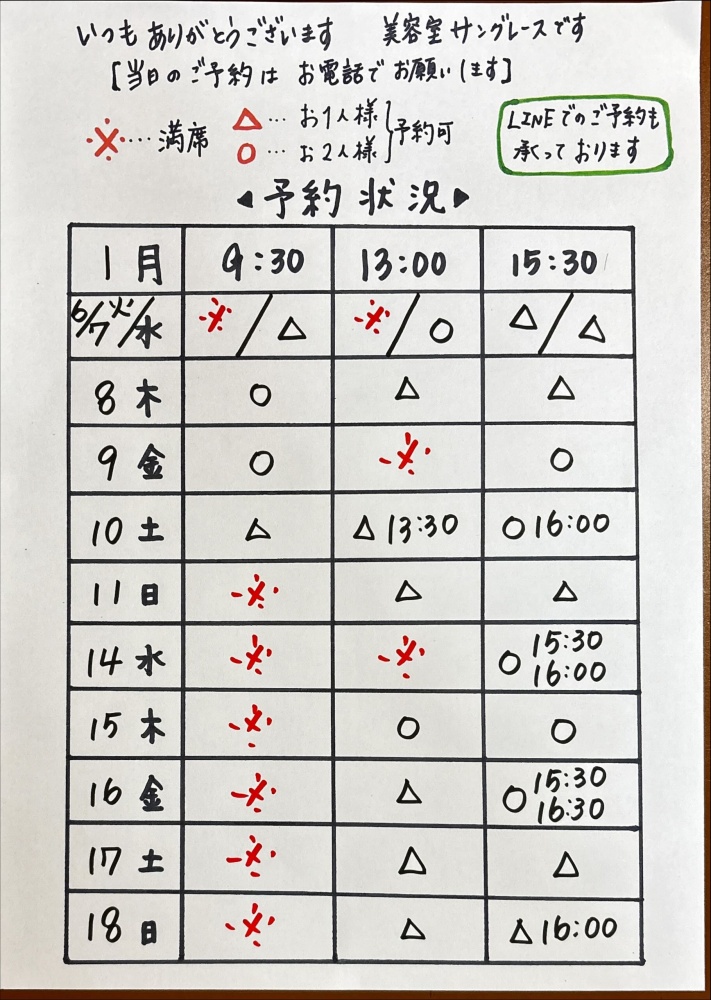 いつもありがとうございます　美容室サングレースです
[当日のご予約は お電話で お願いします]
※…満席
△…お1人様
○…お2人様
予約可
LINEでのご予約も
承っております
◀予約状況▶
1月 9:30 13:00 15:30
6/7 火/水 ※/△ ※/○ △/△
8 木 ○ △ △
9 金 ○ ※ ○
10 土 △ △13:30 ○16:00
11 日 ※ △ △
14 水 ※ ※ ○15:30 16:00
15 木 ※ ○ ○
16 金 ※ △ ○15:30 16:30
17 土 ※ △ △
18 日 ※ △ △16:00